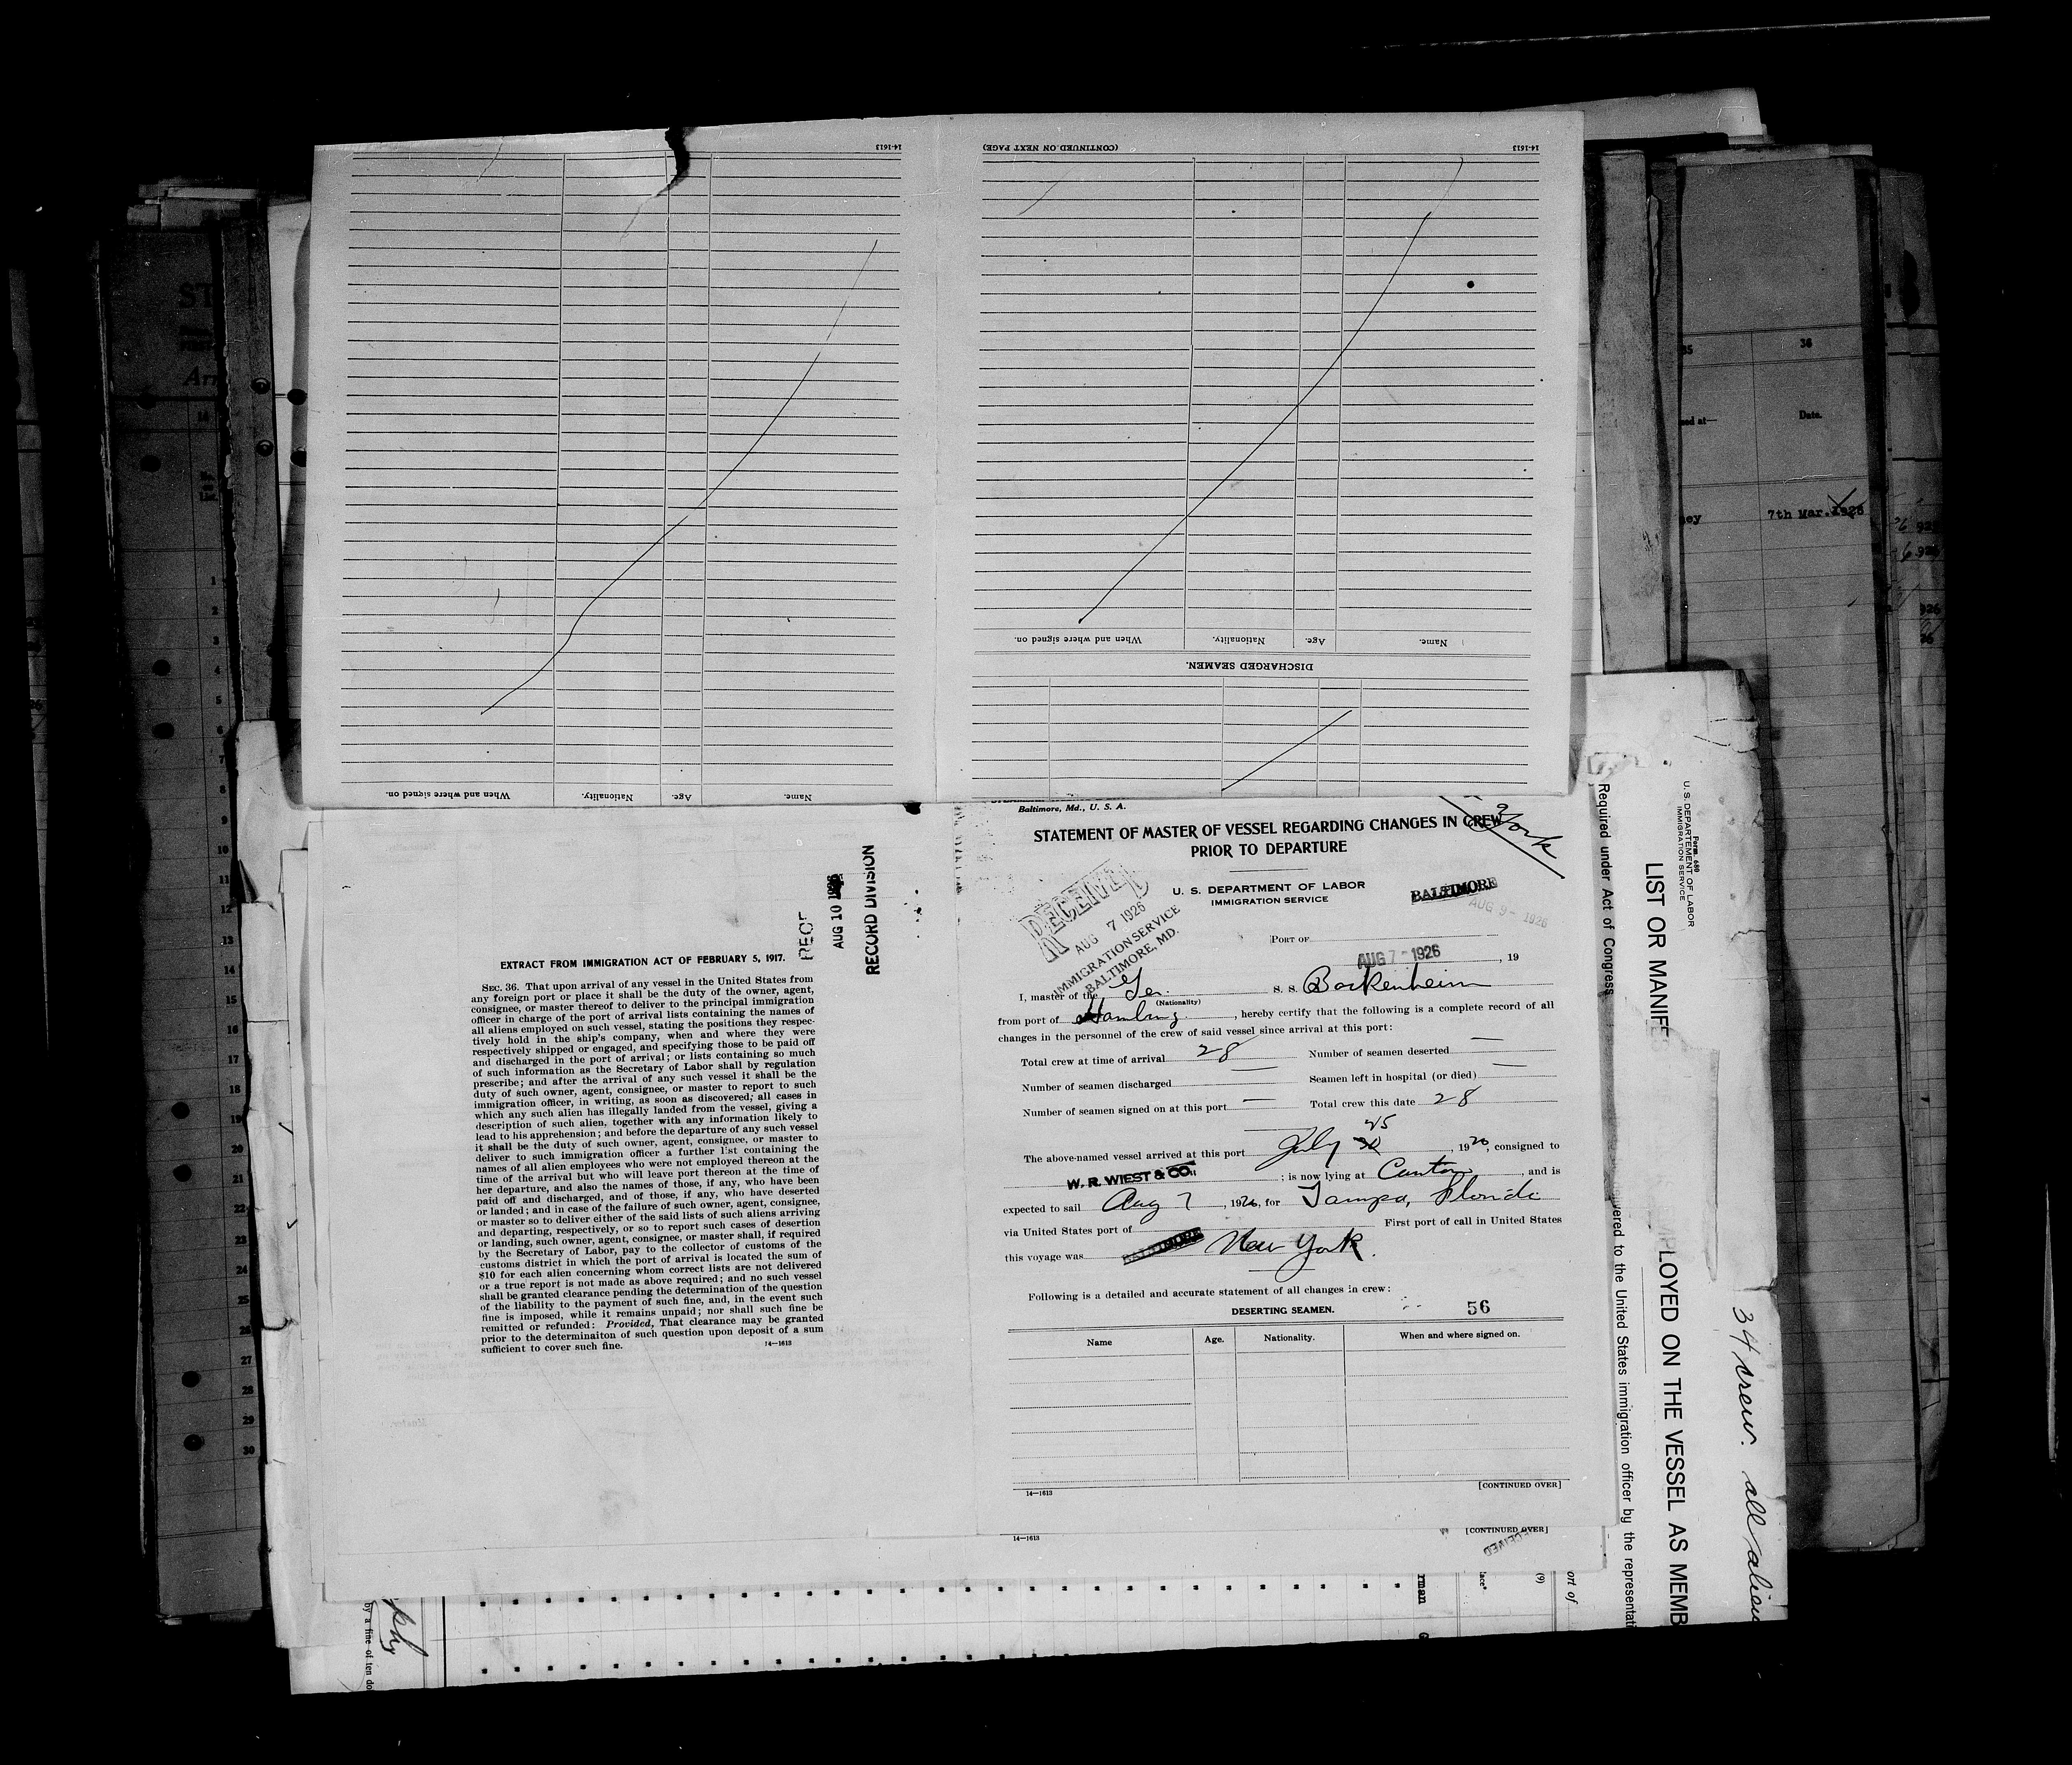 14-1613
(CONTINUED ON NEXT PAGE)
14-1613
When and where signed on.
Nationality.
Age.
Name.
DISCHARGED SEAMEN.
When and where signed on.
Nationality.
Age.
Name.
Baltimore, Md., U. S. A.
STATEMENT OF MASTER OF VESSEL REGARDING CHANGES IN CREW
PRIOR TO DEPARTURE
U. S. DEPARTMENT OF LABOR
IMMIGRATION SERVICE
BALTIMORE
AUG 9 - 1926
RECEIVED
AUG 7 1926
IMMIGRATION SERVICE
BALTIMORE, MD.
PORT OF
AUG 7 - 1926, 19
I, master of the Ger. S. S. Bockenheim
(Nationality)
from port of Hamburg, hereby certify that the following is a complete record of all
changes in the personnel of the crew of said vessel since arrival at this port:
Total crew at time of arrival 28 Number of seamen deserted —
Number of seamen discharged — Seamen left in hospital (or died) —
Number of seamen signed on at this port — Total crew this date 28
The above-named vessel arrived at this port July 25, 1926, consigned to
W. R. WIEST & CO. ; is now lying at Canton, and is
expected to sail Aug 7, 1926, for Tampa, Florida
via United States port of First port of call in United States
this voyage was BALTIMORE New York.
Following is a detailed and accurate statement of all changes in crew:
DESERTING SEAMEN.
56
Name Age. Nationality. When and where signed on.
14—1613 [CONTINUED OVER]
14—1613 [CONTINUED OVER]
RECEIVED
AUG 10 1926
RECORD DIVISION
EXTRACT FROM IMMIGRATION ACT OF FEBRUARY 5, 1917.
SEC. 36. That upon arrival of any vessel in the United States from
any foreign port or place it shall be the duty of the owner, agent,
consignee, or master thereof to deliver to the principal immigration
officer in charge of the port of arrival lists containing the names of
all aliens employed on such vessel, stating the positions they respec-
tively hold in the ship's company, when and where they were
respectively shipped or engaged, and specifying those to be paid off
and discharged in the port of arrival; or lists containing so much
of such information as the Secretary of Labor shall by regulation
prescribe; and after the arrival of any such vessel it shall be the
duty of such owner, agent, consignee, or master to report to such
immigration officer, in writing, as soon as discovered, all cases in
which any such alien has illegally landed from the vessel, giving a
description of such alien, together with any information likely to
lead to his apprehension; and before the departure of any such vessel
it shall be the duty of such owner, agent, consignee, or master to
deliver to such immigration officer a further list containing the
names of all alien employees who were not employed thereon at the
time of the arrival but who will leave port thereon at the time of
her departure, and also the names of those, if any, who have been
paid off and discharged, and of those, if any, who have deserted
or landed; and in case of the failure of such owner, agent, consignee,
or master so to deliver either of the said lists of such aliens arriving
and departing, respectively, or so to report such cases of desertion
or landing, such owner, agent, consignee, or master shall, if required
by the Secretary of Labor, pay to the collector of customs of the
customs district in which the port of arrival is located the sum of
$10 for each alien concerning whom correct lists are not delivered
or a true report is not made as above required; and no such vessel
shall be granted clearance pending the determination of the question
of the liability to the payment of such fine, and, in the event such
fine is imposed, while it remains unpaid; nor shall such fine be
remitted or refunded: Provided, That clearance may be granted
prior to the determinaiton of such question upon deposit of a sum
sufficient to cover such fine.
14—1613
Form 680
U. S. DEPARTMENT OF LABOR
IMMIGRATION SERVICE
LIST OR MANIFE
LOYED ON THE VESSEL AS MEMB
Required under Act of Congress
vered to the United States immigration officer by the representati
34 crew. all alien
35
36
Date.
7th Mar. 1926
ort of
(9)
rman
by a fine of ten do
14
1
2
3
4
5
6
7
8
9
10
11
12
13
14
15
16
17
18
19
20
21
22
23
24
25
26
27
28
29
30